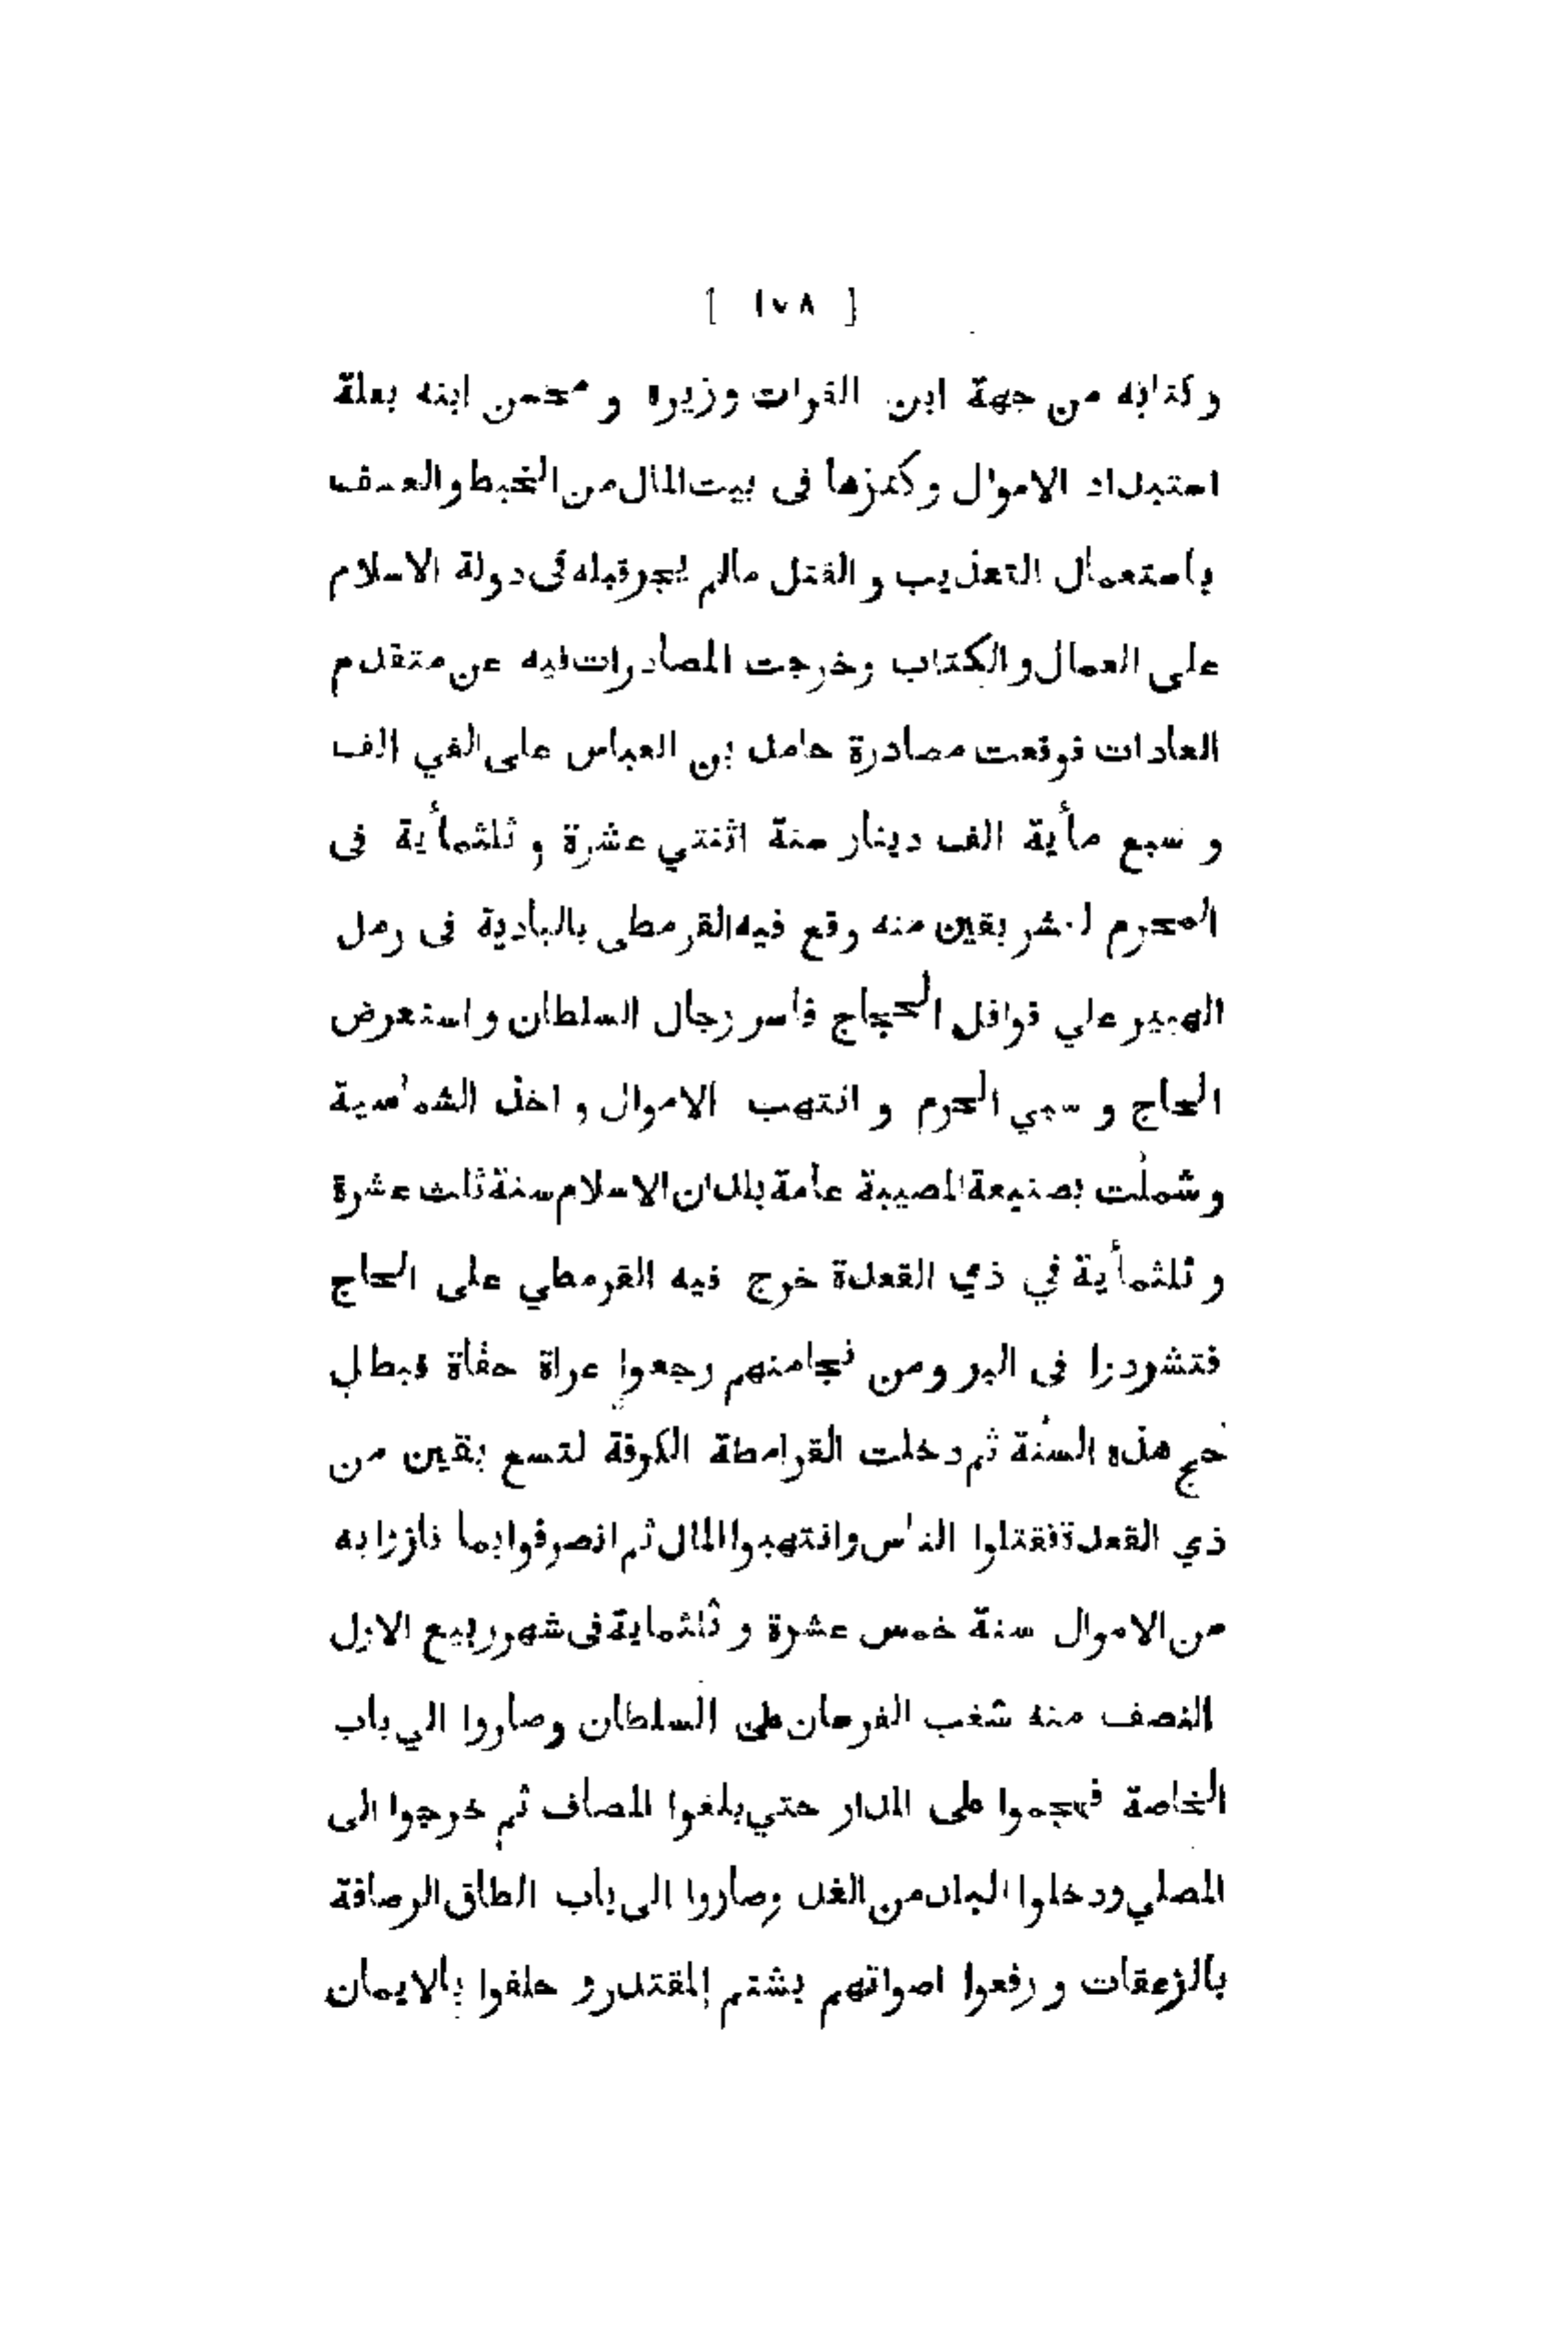 [ ١٧٨ ]
و كتابه من جهة ابن الفرات وزيره و محسن ابنه بعلة
استبداد الاموال و كنزها فى بيت المال من الخبط و العسف
باستعمال التعذيب و القتل مالم يجر قبله فى دولة الاسلام
على العمال و الكتاب و خرجت المصادرات فيه عن متقدم
العادات فوقعت مصادرة حامد بن العباس على الفي الف
و سبع مأية الف دينار سنة اثنتي عشرة و ثلثمأية فى
المحرم لعشر بقين منه وقع فيه القرمطى بالبادية فى رمل
الهبير علي قوافل الحجاج فاسر رجال السلطان و استعرض
الحاج و سبي الحرم و انتهب الاموال و اخذ الشماسية
و شملت بصنيعة المصيبة عامة بلدان الاسلام سنة ثلث عشرة
و ثلثمأية في ذي القعدة خرج فيه القرمطي على الحاج
فتشردوا فى البر و من نجا منهم رجعوا عراة حفاة فبطل
حج هذه السنة ثم دخلت القرامطة الكوفة لتسع بقين من
ذي القعدة فقتلوا الناس و انتهبوا المال ثم انصرفوا بما فازوا به
من الاموال سنة خمس عشرة و ثلثماية فى شهور ربيع الاول
النصف منه شغب الفرسان على السلطان وصاروا الي باب
الخاصة فهجموا على الدار حتي بلغوا المصاف ثم خرجوا الى
المصلي ودخلوا البلد من الغد وصاروا الى باب الطاق الرصافة
بالزعقات و رفعوا اصواتهم بشتم المقتدر و حلفوا بالايمان